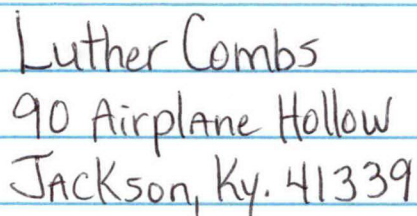 Luther Combs
90 Airplane Hollow
Jackson, Ky. 41339